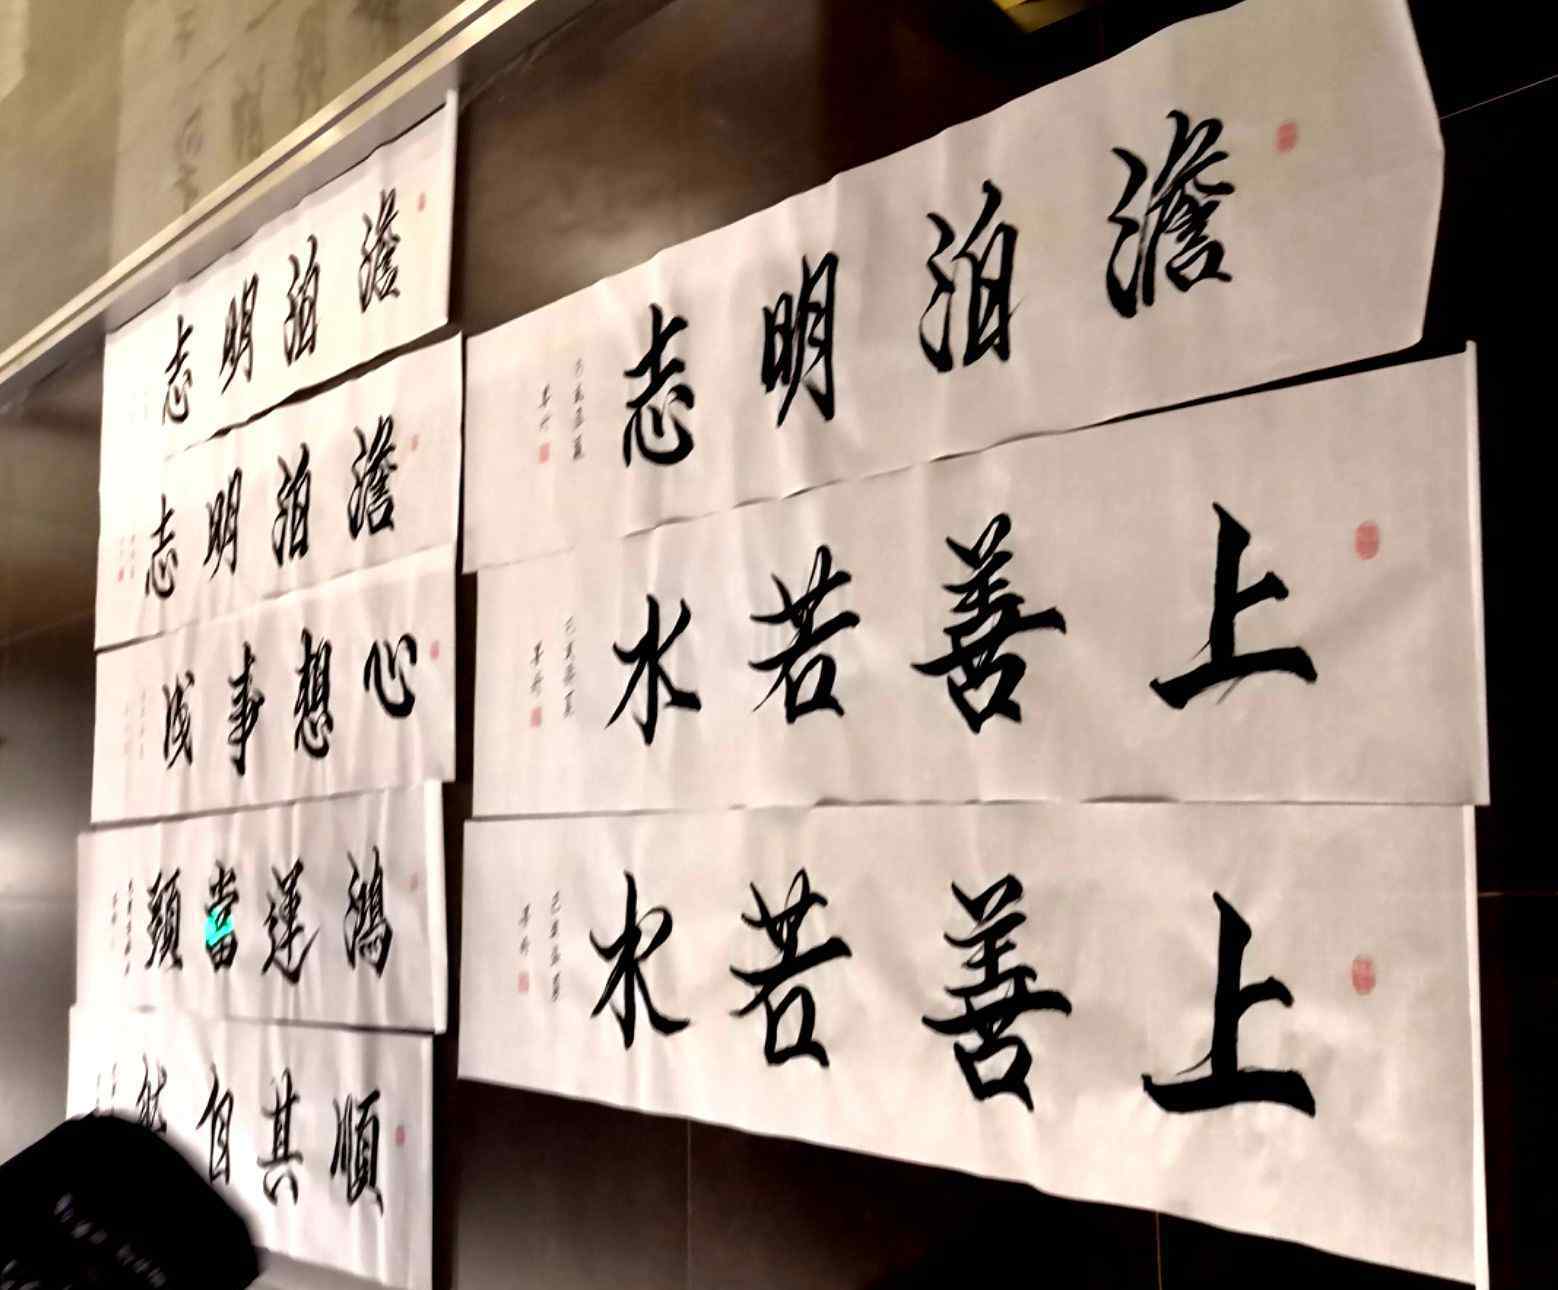 澹泊明志
上善若水
上善若水
澹泊明志
澹泊明志
心想事成
鴻運當頭
順其自然